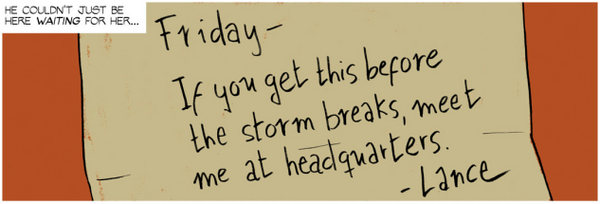 HE COULDN'T JUST BE
HERE WAITING FOR HER...
Friday-
If you get this before
the storm breaks, meet
me at headquarters.
-Lance